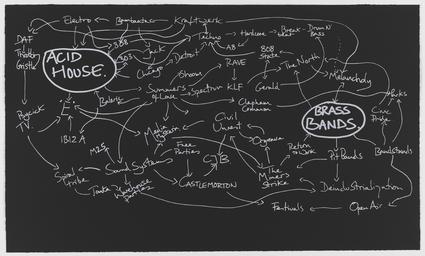 Electro
Bambaataa
Kraftwerk
DAF
808
303
Jack
Techno
Hardcore
Break-beat
Drum N Bass
Throbbing Gristle
ACID HOUSE.
Chicago
Detroit
AB
808 State
Shoom
RAVE
The North
Melancholy
Balearic
Summer of Love
Spectrum
KLF
Gerald
Parks
E
Clapham Common
BRASS BANDS.
Civic Pride
Psychick TV
Ibiza
Media
Civil Unrest
Orgreave
MZS
Free Parties
CJB
Return to Work
Pit Bands
Bandstands
Spiral Tribe
Sound Systems
CASTLEMORTON
The Miners Strike
Deindustrialization
Warehouse Parties
Festivals
Open Air